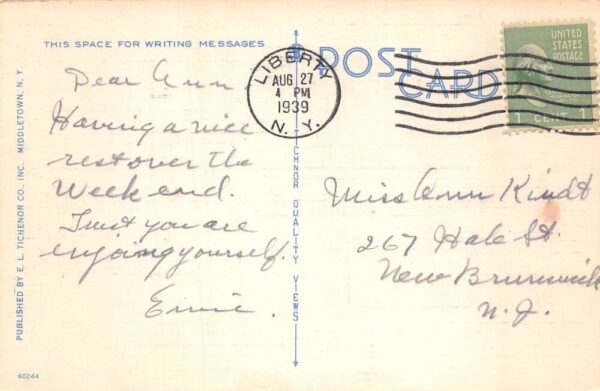 THIS SPACE FOR WRITING MESSAGES
POST
CARD
LIBERTY
AUG 27
4 PM
1939
N. Y.
UNITED
STATES
POSTAGE
1 CENT 1
Dear Ann
Having a nice
rest over the
Week end.
Trust you are
enjoing yourself.
Ernie.
Miss Ann Kindt
267 Hale St.
New Brunswick
N. J.
PUBLISHED BY E. L. TICHENOR CO., INC. MIDDLETOWN, N. Y.
TICHNOR QUALITY VIEWS
60244